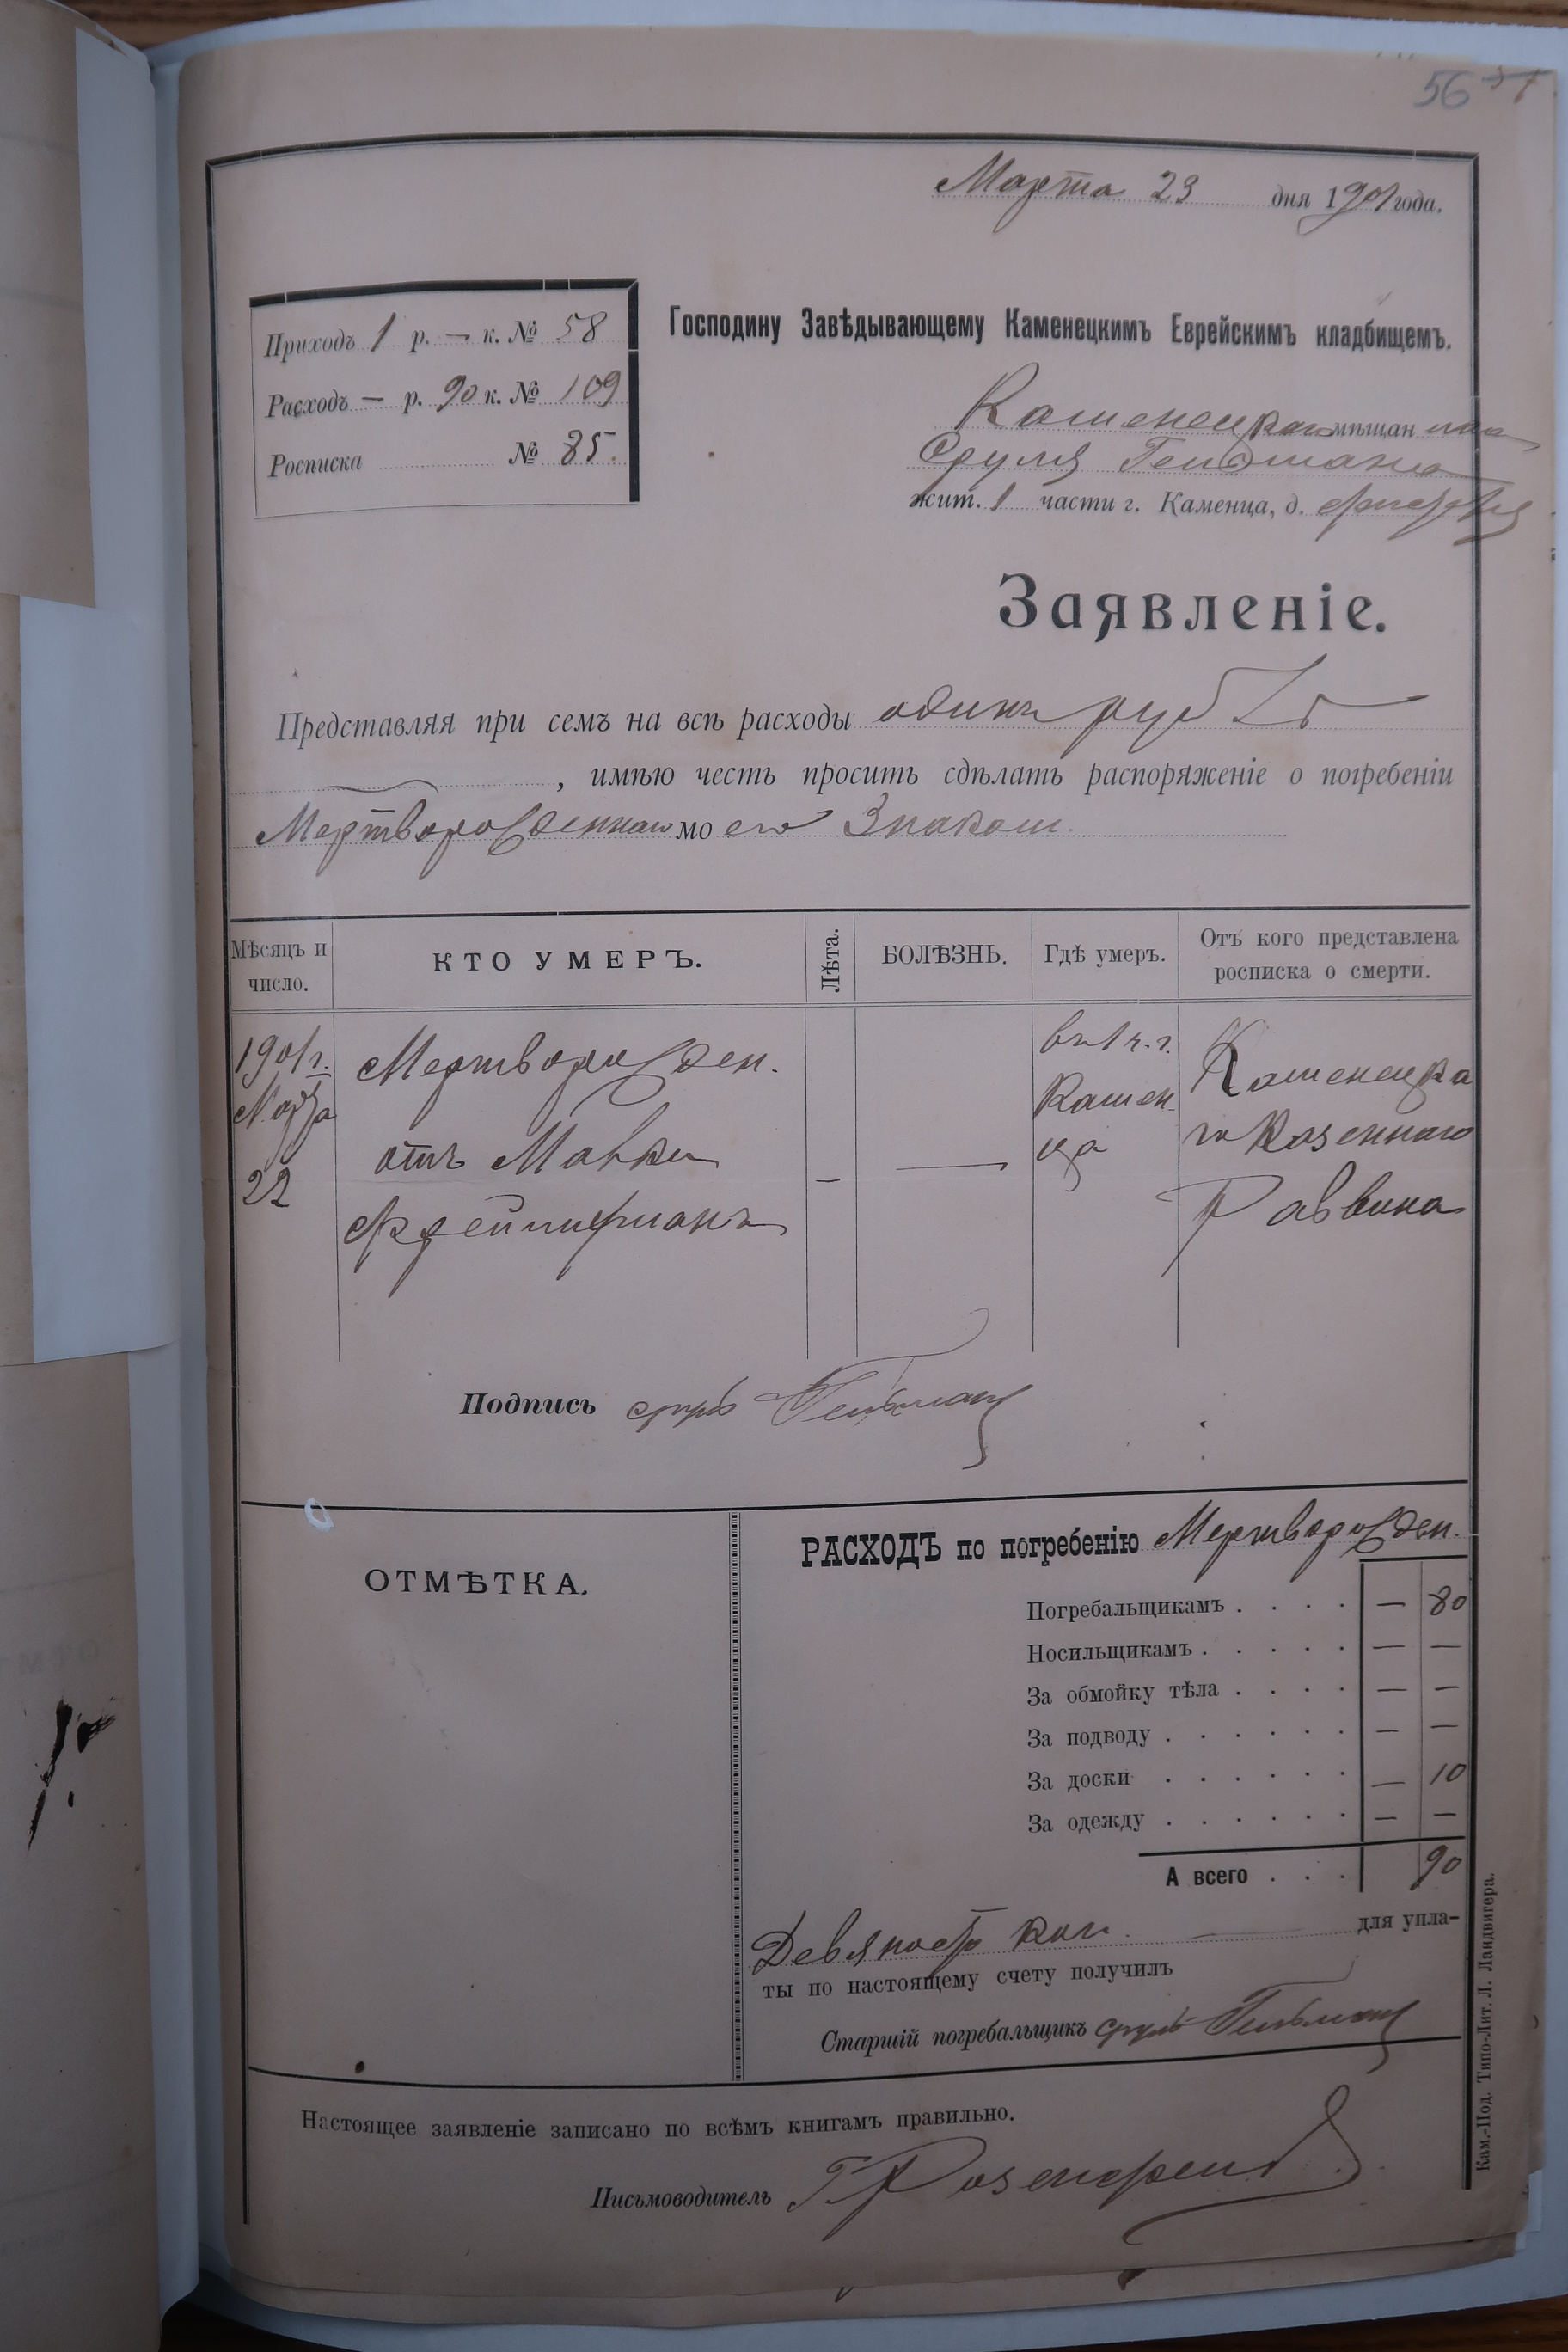 56
Марта 23 дня 1901 года.
Приходъ 1 р. — к. № 58
Расходъ — р. 90 к. № 109
Росписка № 85.
Господину Завѣдывающему Каменецкимъ Еврейскимъ кладбищемъ.
Каменецкаго мѣщанина
Сруля Гендмана
жит. 1 части г. Каменца, д.
Заявленіе.
Представляя при семъ на всѣ расходы одинъ руб
, имѣю честь просить сдѣлать распоряженіе о погребеніи
Мертворожденнаго моего Знаком.
Мѣсяцъ и число.
КТО УМЕРЪ.
Лѣта.
БОЛѢЗНЬ.
Гдѣ умеръ.
Отъ кого представлена росписка о смерти.
1901 г. Марта 22
Мертворожден.
отъ Мавки
—
—
въ 1 ч. г. Каменца
Каменецкаго Казеннаго Раввина
Подпись
ОТМѢТКА.
РАСХОДЪ по погребенію Мертворожден.
Погребальщикамъ . . . . — 80
Носильщикамъ . . . . . — —
За обмойку тѣла . . . . — —
За подводу . . . . . . — —
За доски . . . . . . — 10
За одежду . . . . . . — —
А всего . . . 90
Девяносто коп. для упла-
ты по настоящему счету получилъ
Старшій погребальщикъ
Настоящее заявленіе записано по всѣмъ книгамъ правильно.
Письмоводитель Г Розенфельд
Кам.-Под. Типо-Лит. Л. Ландвигера.